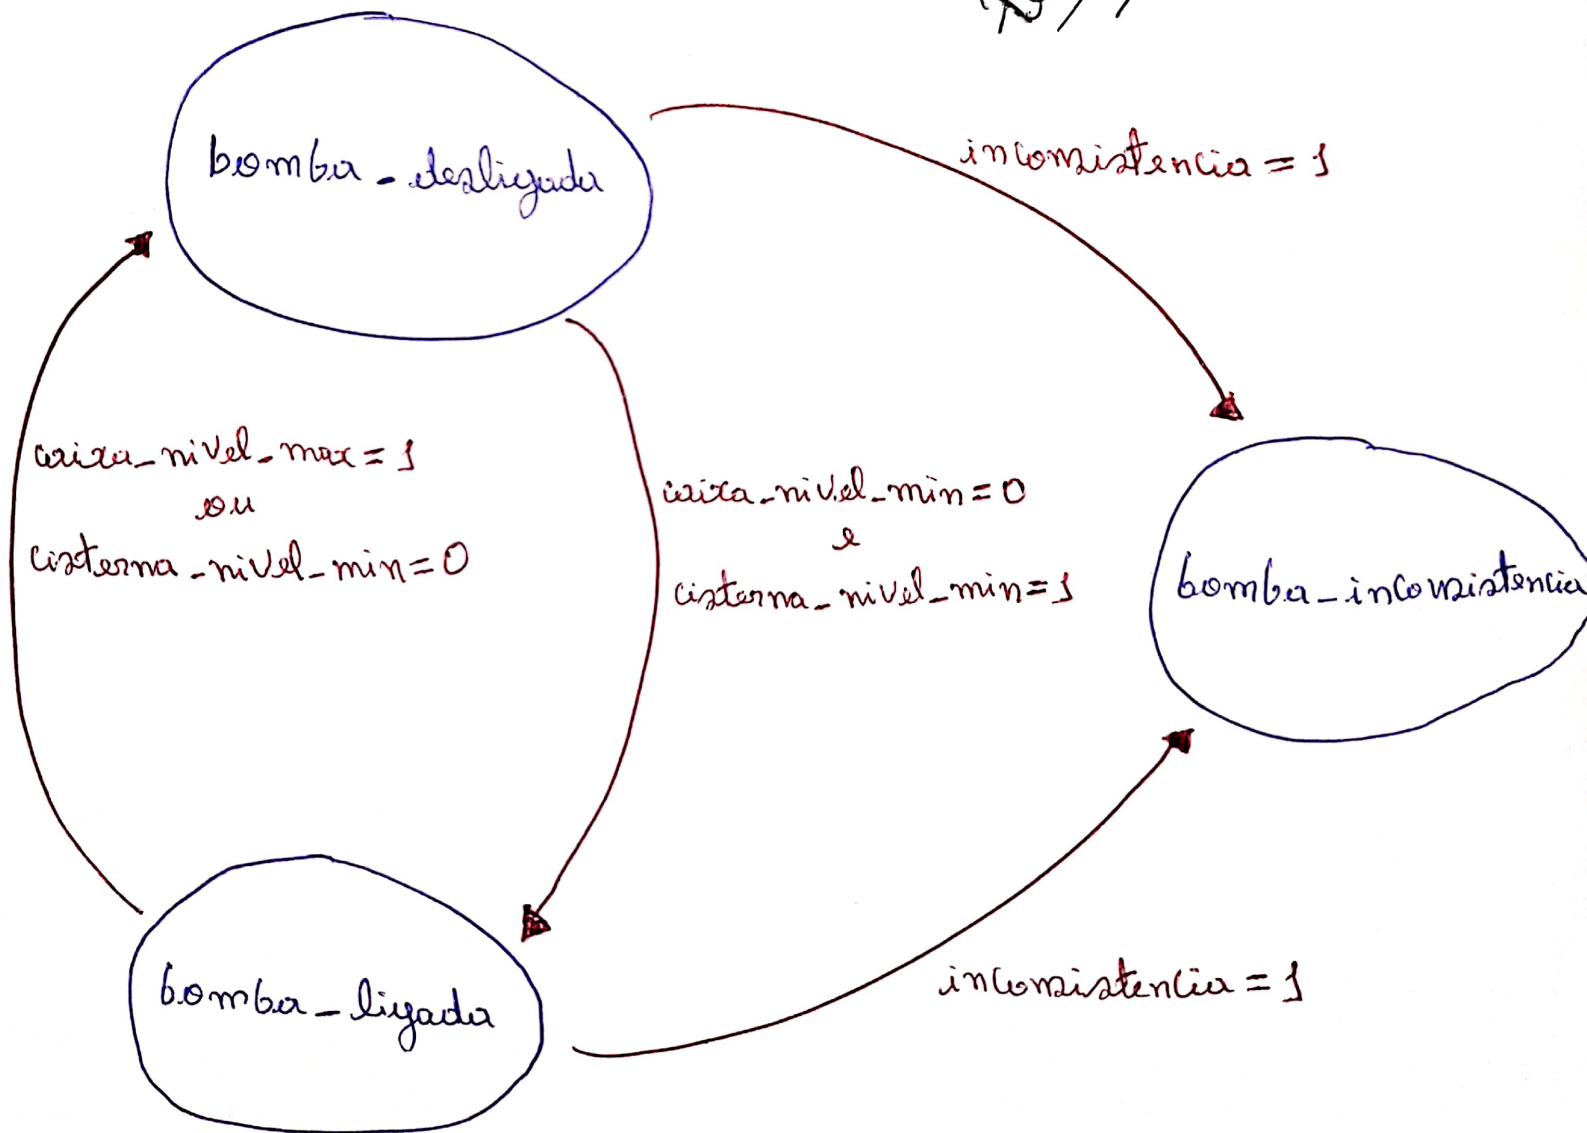 bomba_desligada
inconsistencia = 1
caixa_nivel_max = 1
ou
cisterna_nivel_min = 0
caixa_nivel_min = 0
e
cisterna_nivel_min = 1
bomba_inconsistencia
bomba_ligada
inconsistencia = 1